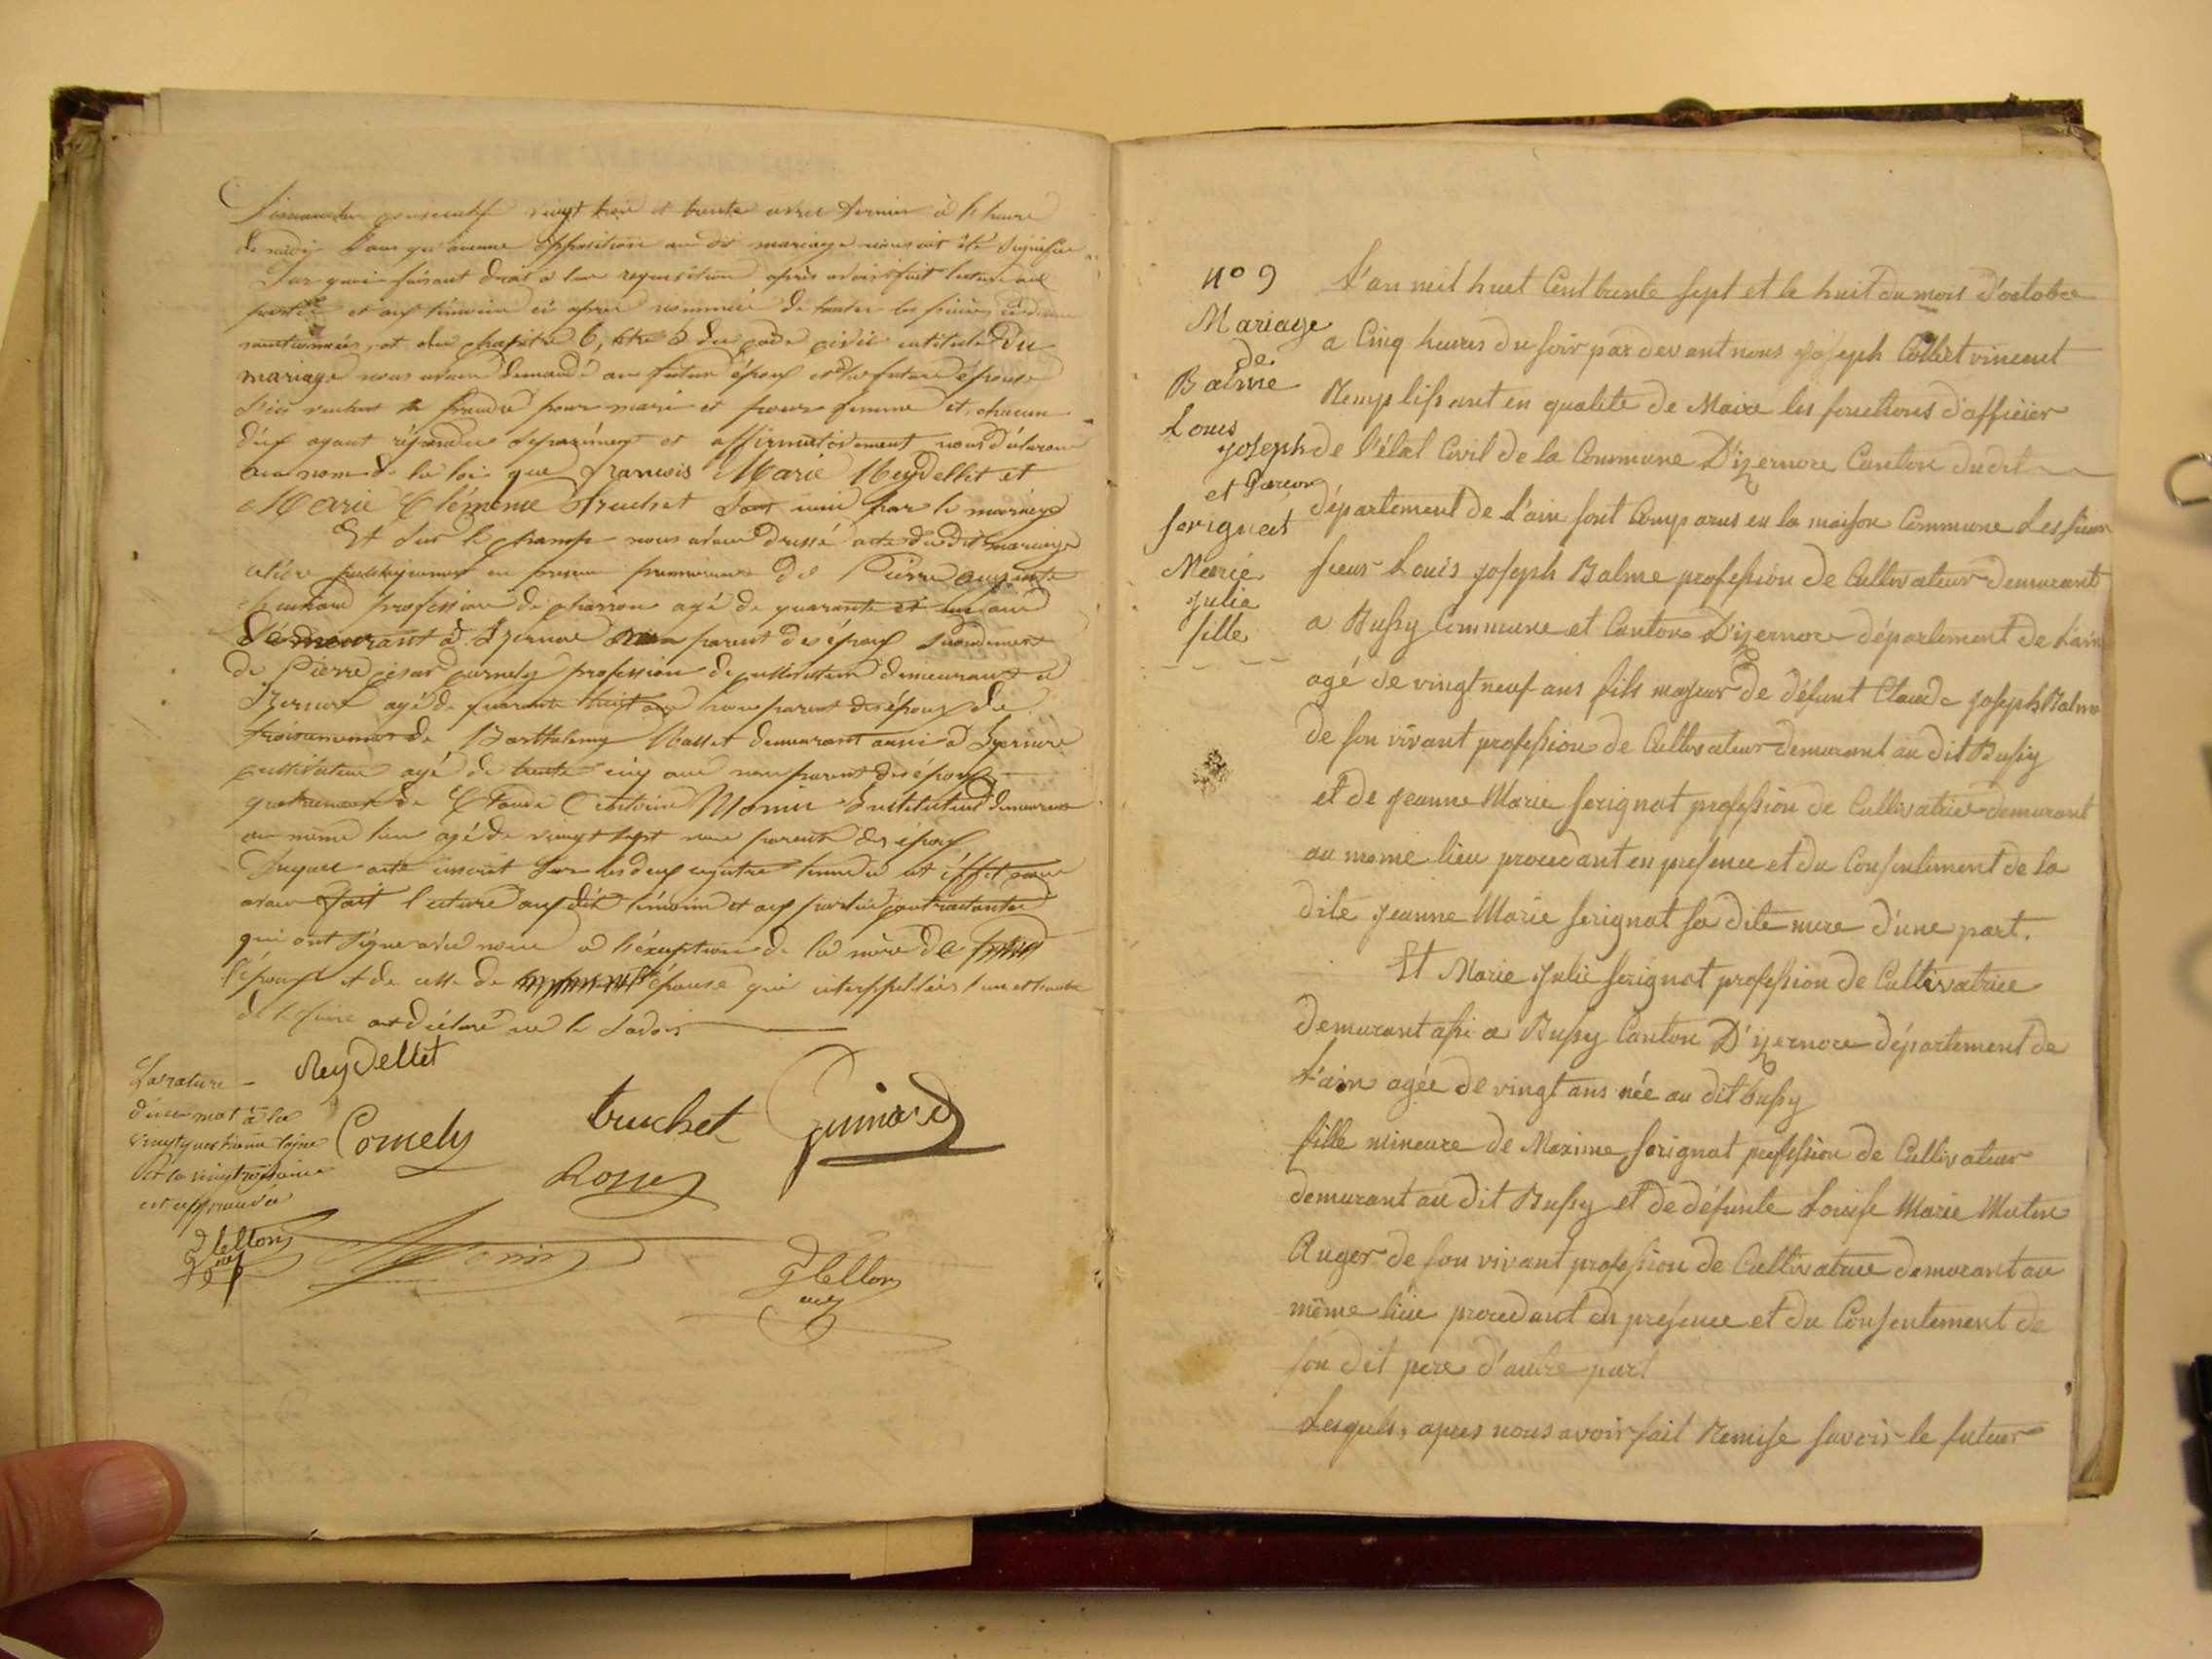 consecutif vingt trois et trente avril dernier à l'heure
de midi sans qu'aucune opposition au dit mariage nous ait été signifiée
Sur quoi faisant droit a leur requisition après avoir fait lecture aux
parties et aux témoins ci après nommés de toutes les pièces
mentionnées, et du chapitre 6, titre 5 du code civil intitulé Du
mariage nous avons demandé au futur époux et a la future épouse
s'ils veulent se prendre pour mari et pour femme et chacun
d'eux ayant répondu séparément et affirmativement nous déclarons
au nom de la loi que François Marie Reydellet et
Marie Clémence Truchet sont unis par le mariage
Et sur le champ nous avons dressé acte du dit mariage
célébré publiquement en presence premièrement de Pierre
profession de charron agé de quarante et un ans
demeurant à Izernore non parent des époux secondement
de Pierre cesar Cornely profession de cultivateur demeurant a
Izernore agé de quarante huit ans non parent des époux
troisiemement de Barthelemy demeurant aussi a Izernore
cultivateur agé de trente cinq ans non parent des époux
quatriemement de Claude Antoine Monin Instituteur demeurant
au même lieu agé de vingt sept non parent des époux
Duquel acte inscrit sur les deux registres tenus a cet effet nous
avons fait lecture aux dits témoins et aux parties contractantes
qui ont signé avec nous a l'éxception de la mère de
l'époux et de celle de l'épouse qui interpellées l'une et l'autre
de le faire ont déclaré ne le savoir
La rature
d'un mot à la
vingt quatrieme ligne
et la vingt troisieme
est approuvée
Reydellet
Cornely
truchet
Guinard
Rosset
Monin
N° 9
Mariage
de
Balme
Louis
joseph
et Garçon
serignat
Marie
julie
fille
L'an mil huit Cent trente sept et le huit du mois d'octobre
a Cinq heures du soir par devant nous joseph Collet vincent
Remplissant en qualité de Maire les fonctions d'officier
de l'état Civil de la Commune D'izernore Canton dudit
département de l'ain sont Comparus en la maison Commune Les sieurs
sieur Louis joseph Balme profession de Cultivateur demurant
a Bussy Commune et Canton D'izernore département de Lain
agé de vingt neuf ans fils majeur de défunt Claude joseph Balme
de son vivant profession de Cultivateur demurant au dit Bussy
et de jeanne Marie serignat profession de Cultivatrice demurant
au meme lieu procedant en presence et du Consentement de la
dite jeanne Marie serignat sa dite mere d'une part.
Et Marie julie serignat profession de Cultivatrice
demurant assi a Bussy Canton D'izernore département de
L'ain agée de vingt ans née au dit bussy
fille mineure de Maxime serignat profession de Cultivateur
demurant au dit Bussy et de défunte Louise Marie
Ruger de son vivant profession de Cultivatrice demurant au
même lieu procedant en presence et du Consentement de
son dit pere d'autre part
Lesquels, apres nous avoir fait Remise savoir le futeur